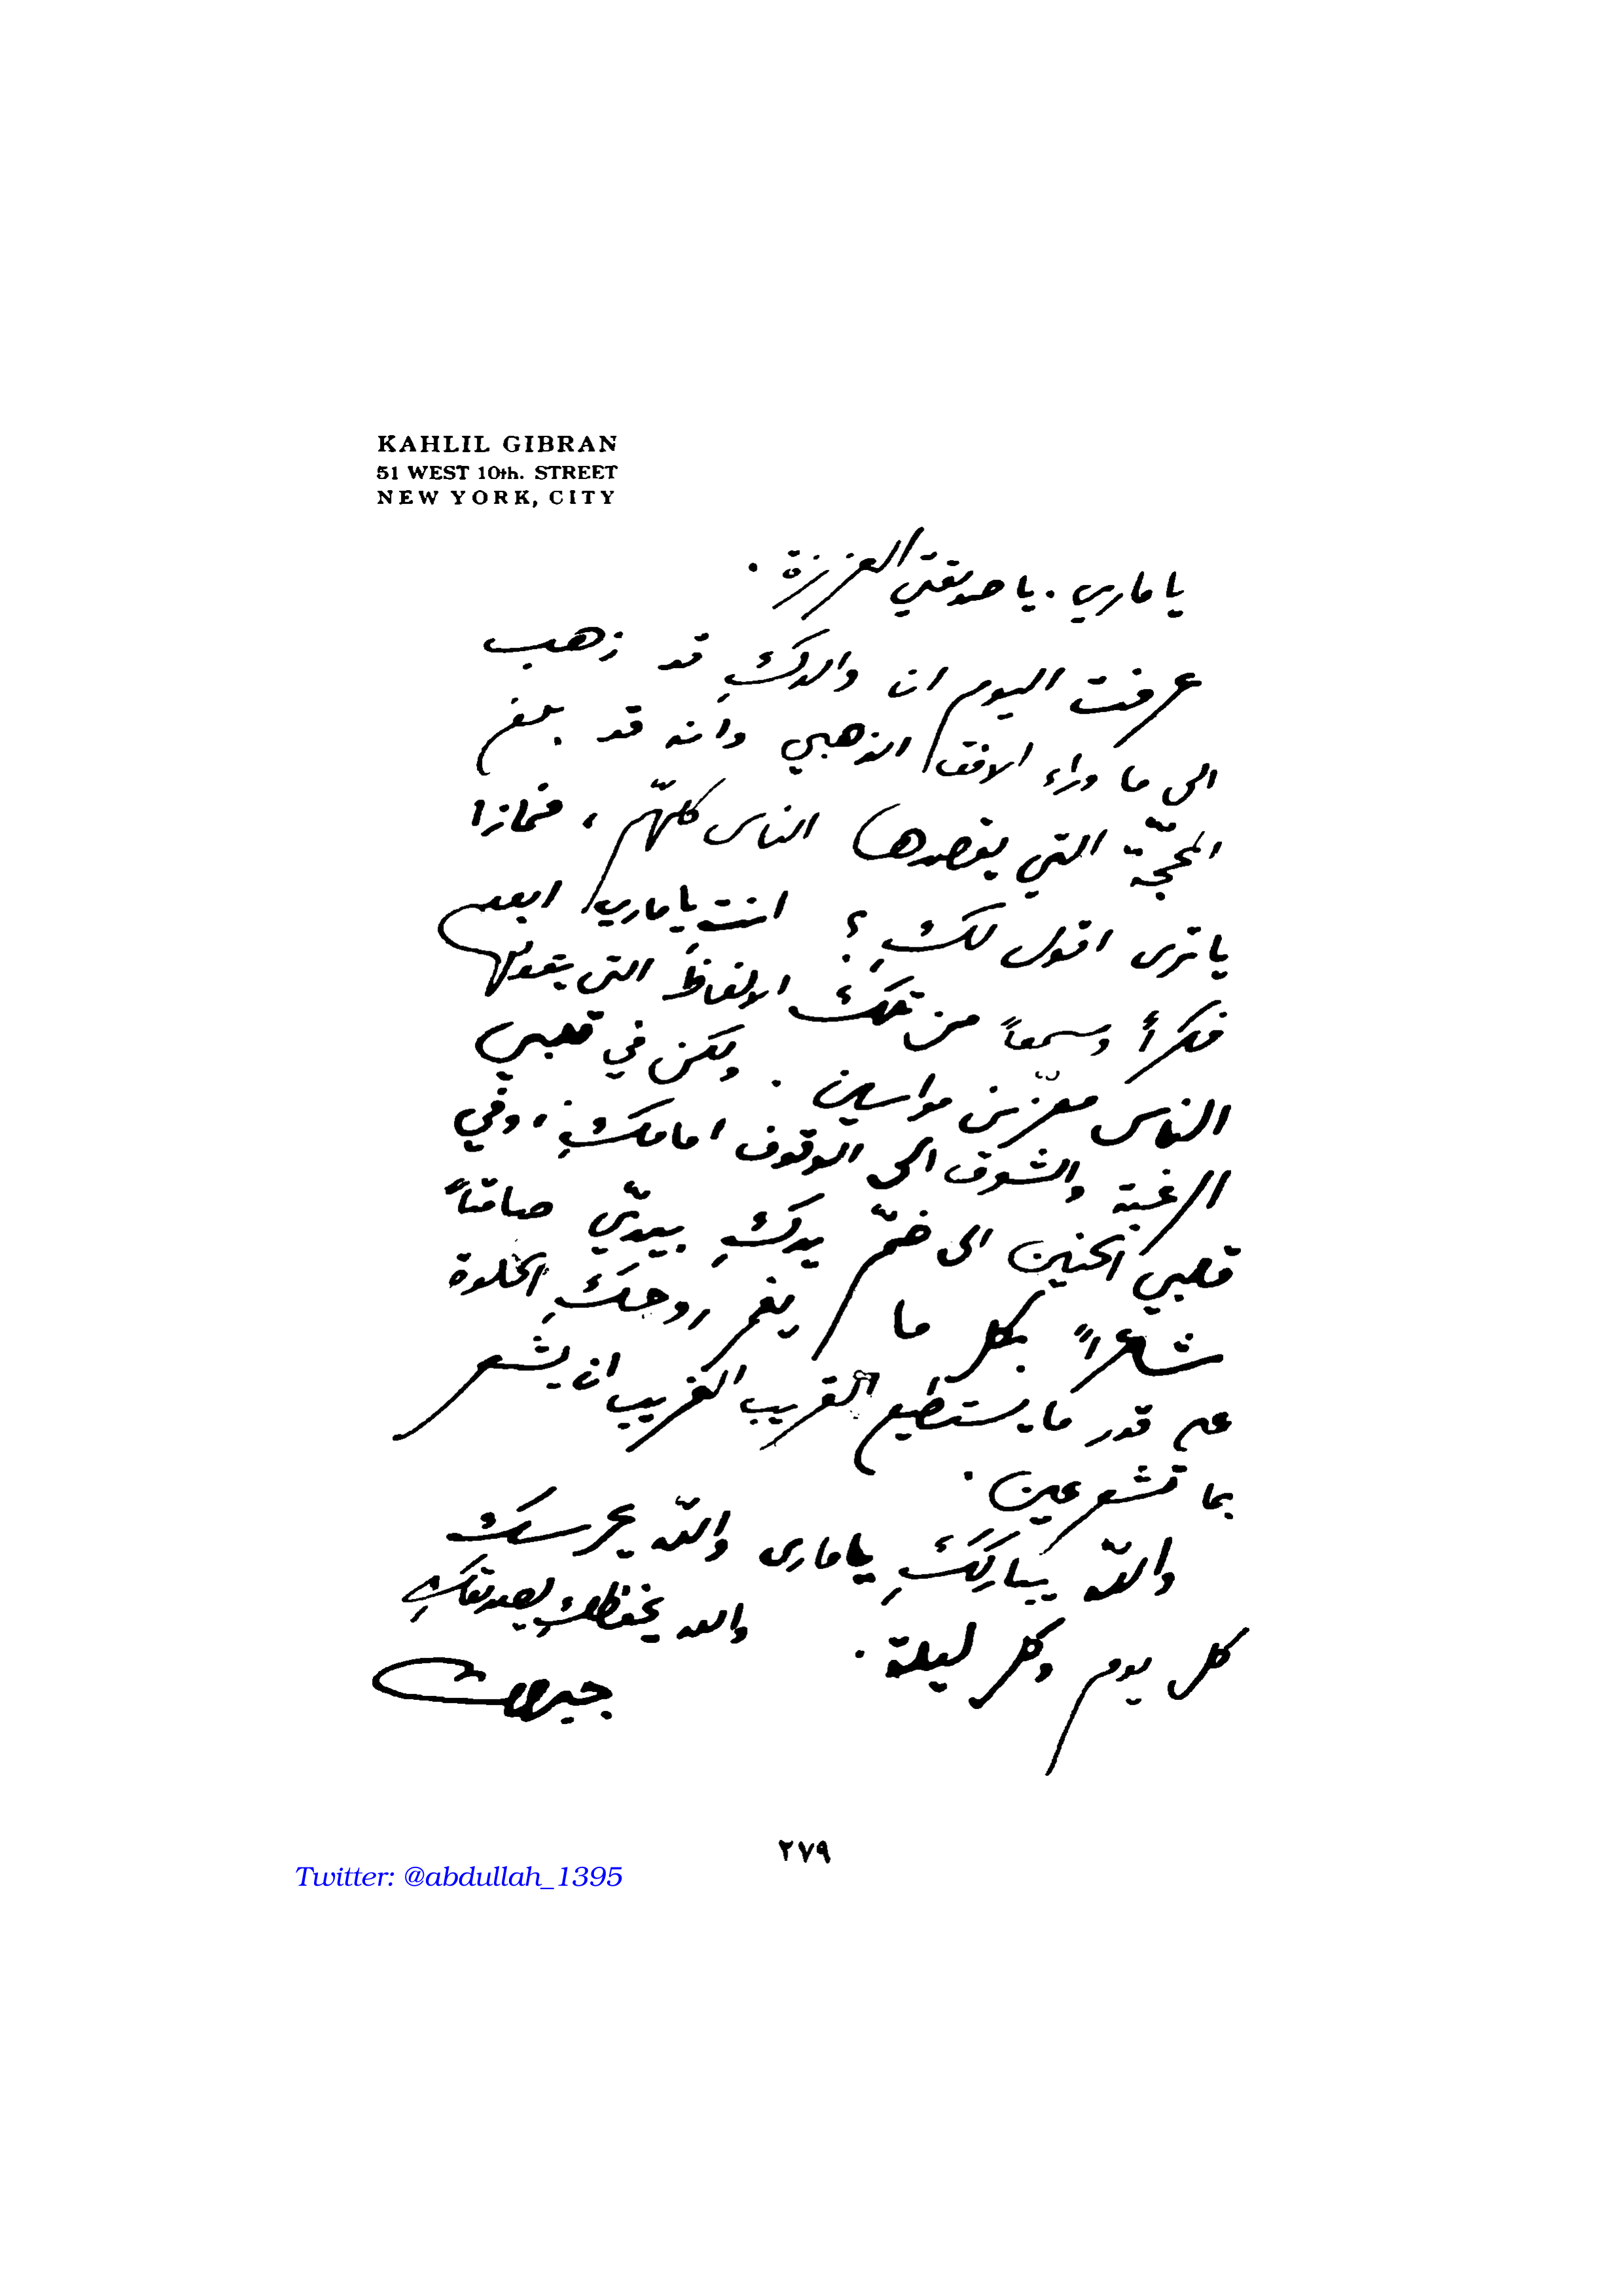 KAHLIL GIBRAN
51 WEST 10th. STREET
NEW YORK, CITY
يا ماري . يا صديقتي العزيزة .
عرفت اليوم ان والدكِ قد ذهب
الى ما وراء الافق الذهبي وانه قد بلغ
المحجّة التي يقصدها الناس كلهّم ، فماذا
يا ترى اقول لكِ ؟ انت يا ماري ابعد
فكراً وسمعاً من تلك الالفاظَ التي يقولها
الناس معزّين مواسين . ولكن في قلبي
الرغبة والشوق الى الوقوف امامكِ ، وفي
قلبي الحنين الى ضمّ يدكِ بيديّ صامتاً
شاعراً بكل ما يغمر روحكِ الحلوة
على قدر ما يستطيع القريب الغريب ان يشعر
بما تشعرعين .
واللّه يباركَكِ يا ماري واللّه يحرسك
كل يوم وكل ليلة . والله يحفظكِ لصديقكِ
جبران
٢٧٩
Twitter: @abdullah_1395